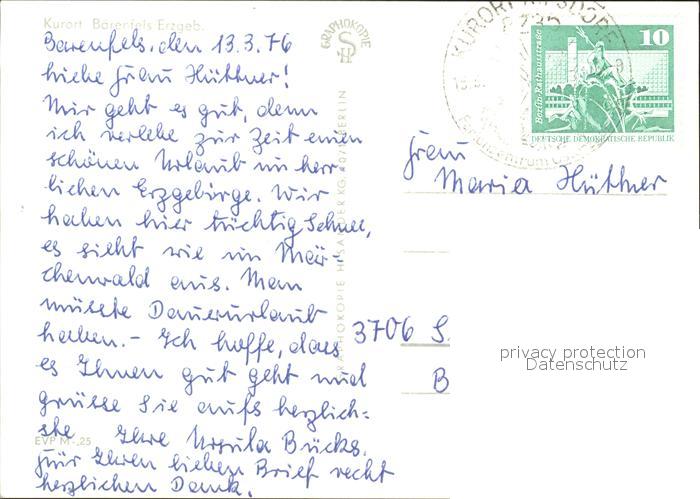 Kurort Bärenfels Erzgeb.
Bärenfels, den 13.3.76
Liebe Frau Hüttner!
Mir geht es gut, denn
ich verlebe zur Zeit einen
schönen Urlaub im herr-
lichen Erzgebirge. Wir
haben hier tüchtig Schnee,
es sieht wie im Mär-
chenwald aus. Man
müsste Dauerurlaub
haben.- Ich hoffe, dass
es Ihnen gut geht und
grüsse Sie aufs herzlich=
ste Ihre Ursula Bücks.
Für Ihren lieben Brief recht
herzlichen Dank.
EVP M -,25
GRAPHOKOPIE
SH
GRAPHOKOPIE H. SANDER KG
BERLIN
KURORT KIPSDORF
8235
10
Berlin-Rathausstraße
DEUTSCHE DEMOKRATISCHE REPUBLIK
Frau
Maria Hüttner
3706 S.
B
privacy protection
Datenschutz